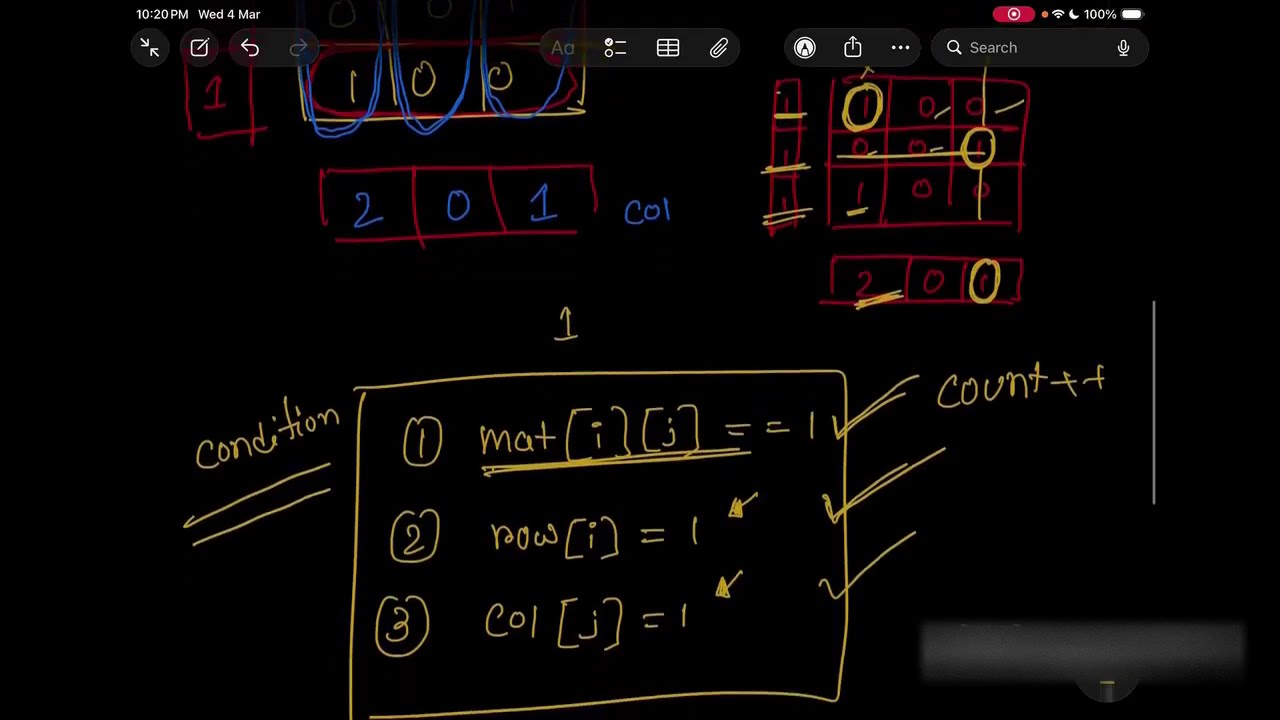 10:20PM Wed 4 Mar 100%
Aa Search
0 0 1
1 1 0 0
2 0 1 col
1 1 0 0
1 0 0 1
1 1 0 0
2 0 1
1
condition
① mat[i][j] == 1 count++
② row[i] = 1
③ col[j] = 1